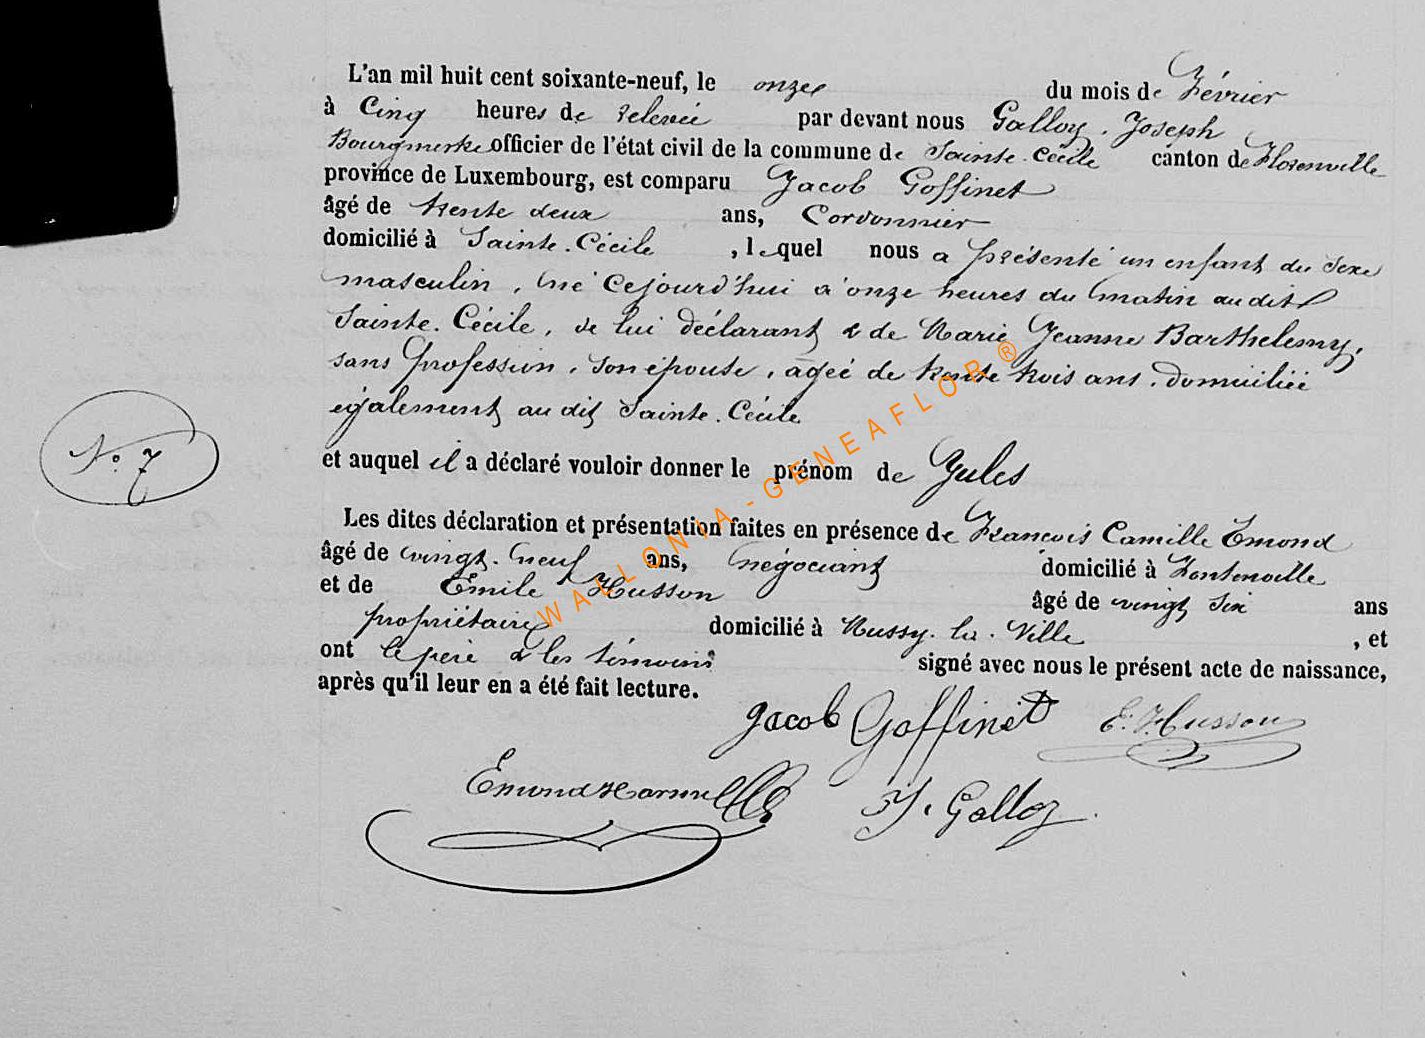 L'an mil huit cent soixante-neuf, le onze du mois de Février
à Cinq heures de relevée par devant nous Galloy, Joseph
Bourgmestre officier de l'état civil de la commune de Sainte-Cécile canton de Florenville
province de Luxembourg, est comparu Jacob Goffinet
âgé de trente deux ans, Cordonnier
domicilié à Sainte-Cécile, lequel nous a présenté un enfant du sexe
masculin, né cejourd'hui à onze heures du matin audit
Sainte-Cécile, de lui déclarant & de Marie Jeanne Barthelemy,
sans profession, son épouse, agée de trente trois ans, domiciliée
également au dit Sainte-Cécile
N° 7
et auquel il a déclaré vouloir donner le prénom de Jules
Les dites déclaration et présentation faites en présence de François Camille Emond
âgé de vingt-neuf ans, négociant domicilié à Fontenoille
et de Emile Husson âgé de vingt six ans
propriétaire domicilié à Mussy-la-Ville, et
ont le père & les témoins signé avec nous le présent acte de naissance,
après qu'il leur en a été fait lecture.
Jacob Goffinet E. Husson
Emond J. Galloy
WALLONIA-GENEAFLOR ®